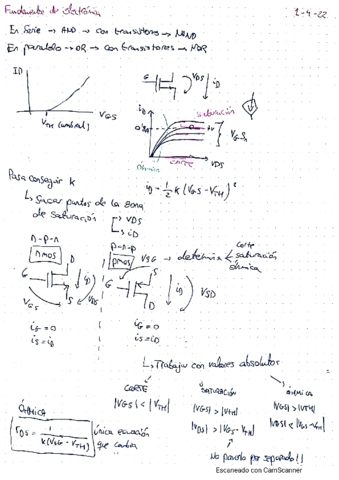 Fundamentos de electrónica
1-4-22
En Serie → AND → con transistores → NAND
En paralelo → OR → con transistores → NOR
ID
VTH (umbral)
VGS
G
VDS
iD
iD
saturación
VGS
óhmica
CORTE
VDS
Para conseguir k
iD = 1/2 k (VGS - VTH)²
↳ Sacar puntos de la zona
de saturación
VDS
iD
n-p-n
nmos
p-n-p
pmos
VSG → determina
corte
saturación
óhmica
D
G
iD
S
VGS
VDS
S
G
iD
VSD
D
iG = 0
iS = iD
iG = 0
iS = iD
↳ Trabajar con valores absolutos
CORTE
|VGS| < |VTH|
SATURACIÓN
|VGS| > |VTH|
|VDS| > |VGS - VTH|
óhmica
|VGS| > |VTH|
|VDS| < |VGS - VTH|
ÓHMICA
rDS = 1 / k(VGS - VTH)
única ecuación
que cambia
No ponerlo por separado!!
Escaneado con CamScanner